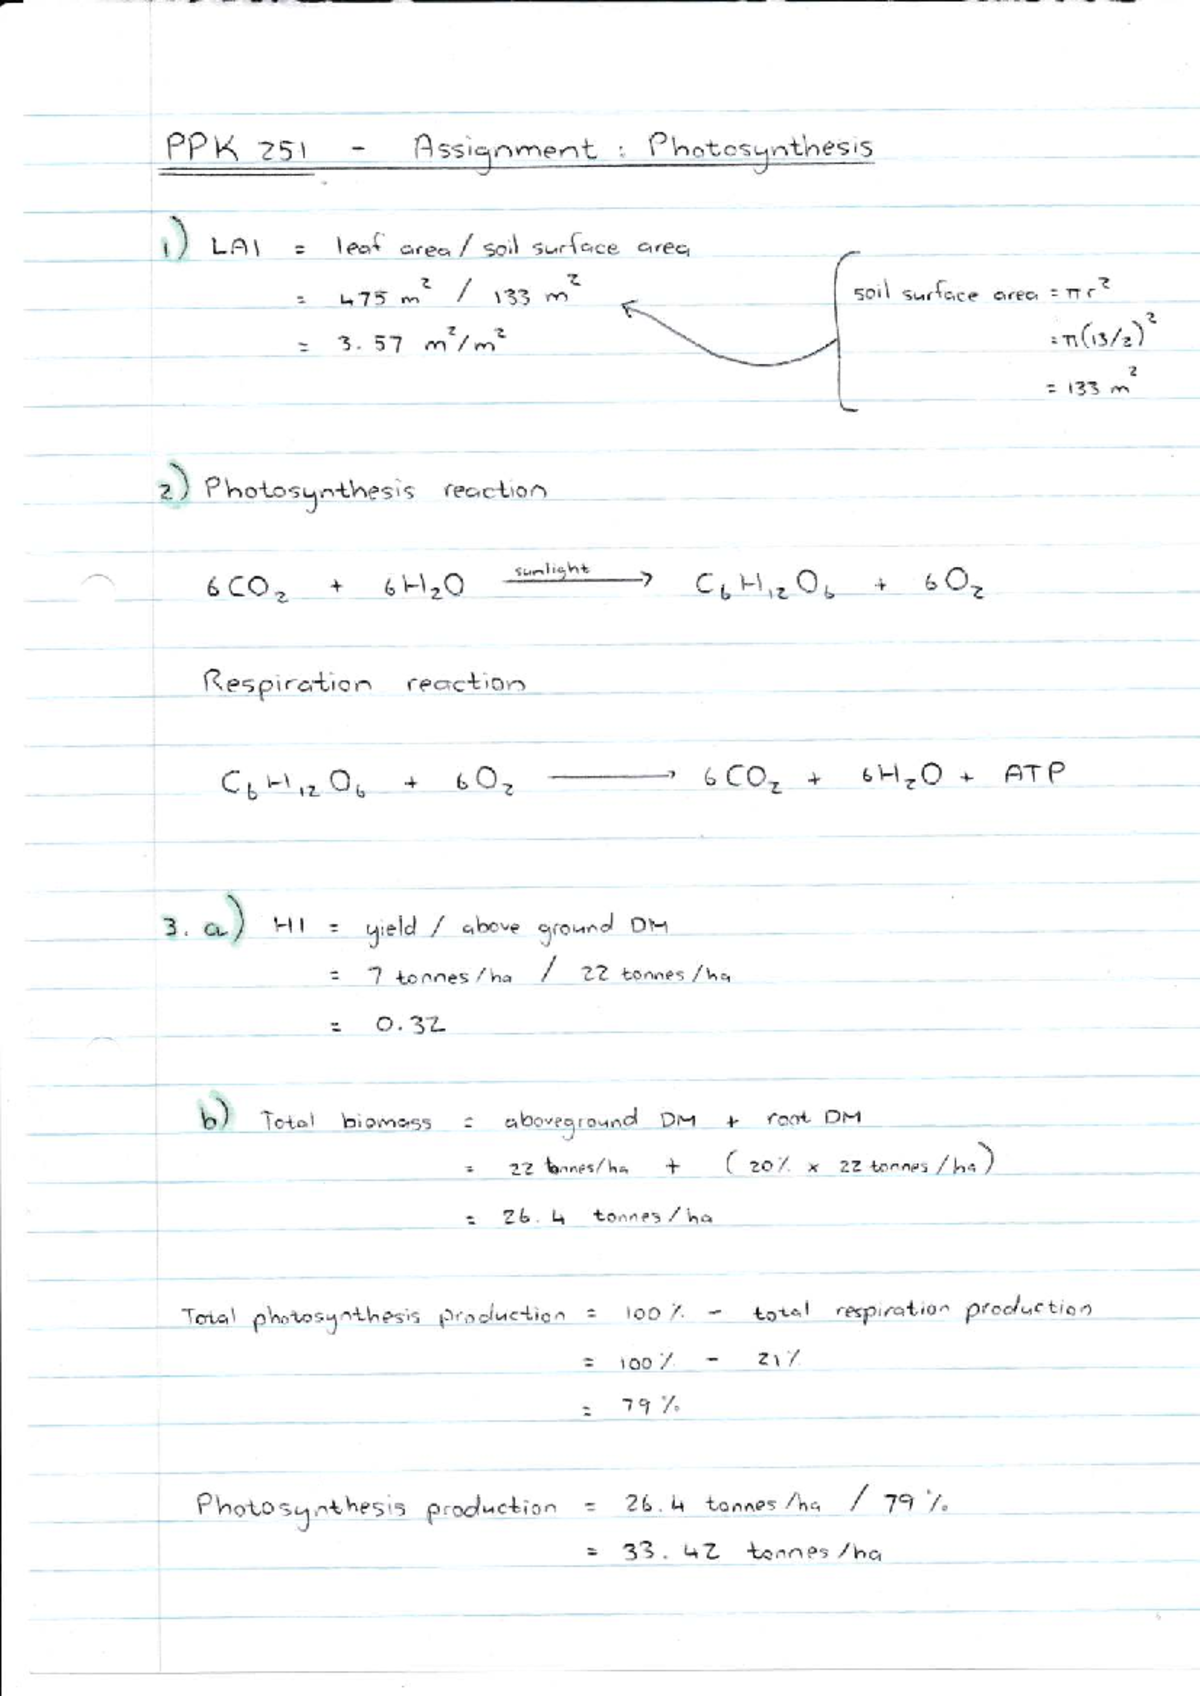 PPK 251 - Assignment : Photosynthesis
1) LAI = leaf area / soil surface area
= 475 m² / 133 m²
= 3.57 m²/m²
soil surface area = πr²
= π(13/2)²
= 133 m²
2) Photosynthesis reaction
6CO₂ + 6H₂O sunlight → C₆H₁₂O₆ + 6O₂
Respiration reaction
C₆H₁₂O₆ + 6O₂ → 6CO₂ + 6H₂O + ATP
3. a) HI = yield / above ground DM
= 7 tonnes/ha / 22 tonnes/ha
= 0.32
b) Total biomass = aboveground DM + root DM
= 22 tonnes/ha + (20% × 22 tonnes/ha)
= 26.4 tonnes/ha
Total photosynthesis production = 100% - total respiration production
= 100% - 21%
= 79%
Photosynthesis production = 26.4 tonnes/ha / 79%
= 33.42 tonnes/ha